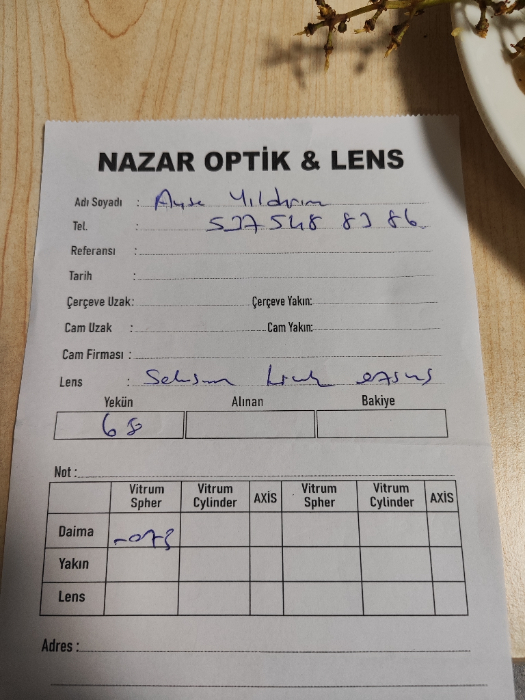 NAZAR OPTİK & LENS
Adı Soyadı : Ayşe Yıldırım
Tel. : 537 548 83 86
Referansı :
Tarih :
Çerçeve Uzak: Çerçeve Yakın:
Cam Uzak : Cam Yakın:
Cam Firması :
Lens :
Yekün Alınan Bakiye
68
Not :
Vitrum Spher Vitrum Cylinder AXİS Vitrum Spher Vitrum Cylinder AXİS
Daima -075
Yakın
Lens
Adres :